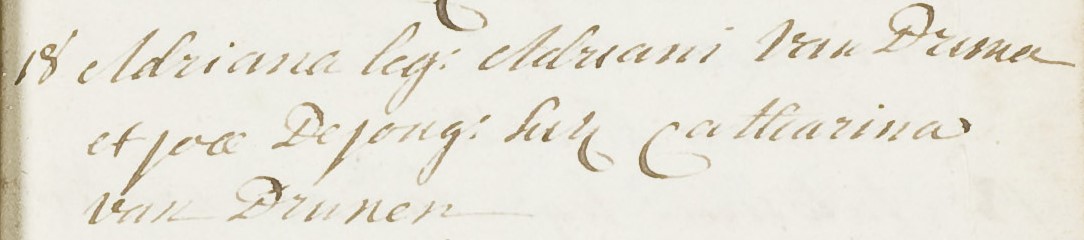 18 Adriana leg: Adriani van Drunen
et joæ De jong: sus: Catharina
van Drunen